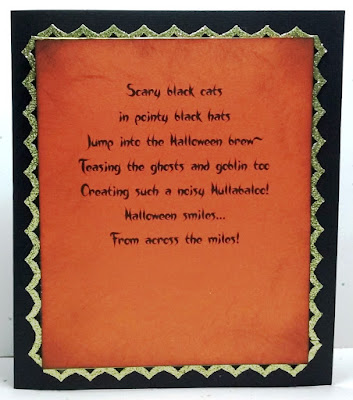 Scary black cats
in pointy black hats
Jump into the Halloween brew~
Teasing the ghosts and goblin too
Creating such a noisy Hullabaloo!
Halloween smiles...
From across the miles!